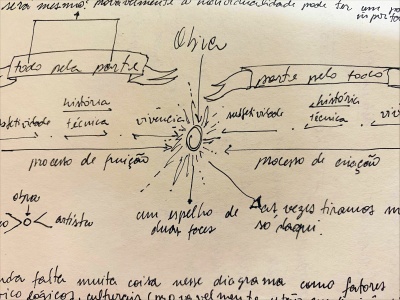 será mesmo? provavelmente a individualidade pode ter um pa
import
Obra
todo pela parte
parte pelo todo
história
subjetividade técnica vivência
subjetividade história técnica viv
processo de fruição
processo de criação
obra
co > o < artístico
um espelho de
duas faces
às vezes tiramos
só daqui.
nda falta muita coisa nesse diagrama como fatores
rico lógicos, culturais (provavelmente